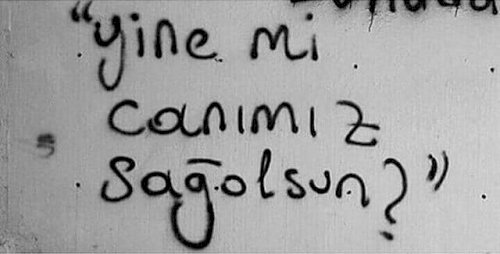 "yine mi
canımız
sağolsun?"